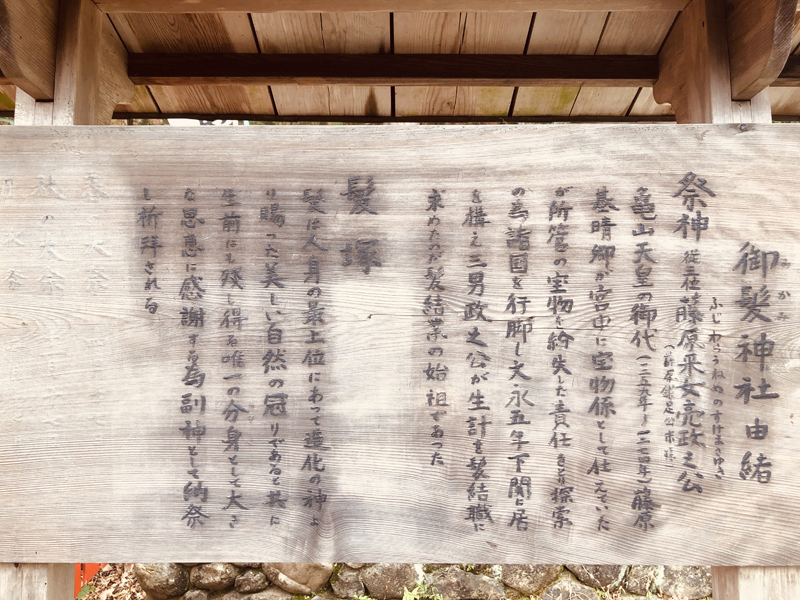 御髪神社由緒
みかみ
祭神 従三位藤原采女亮政之公
ふじわらうねめのすけまさゆき
亀山天皇の御代(一二五九年〜一二七四年)藤原
基晴卿が宮中に宝物係として仕えていた
が所管の宝物を紛失した責任をとり探索
の為諸国を行脚し文永五年下関に居
を構え三男政之公が生計を髪結職に
求めたのが髪結業の始祖であった
髪塚
髪は人身の最上位にあって造化の神よ
り賜った美しい自然の冠りであると共に
生前にも残し得る唯一の分身として大き
な恩恵に感謝する為副神として納祭
し祈拝される